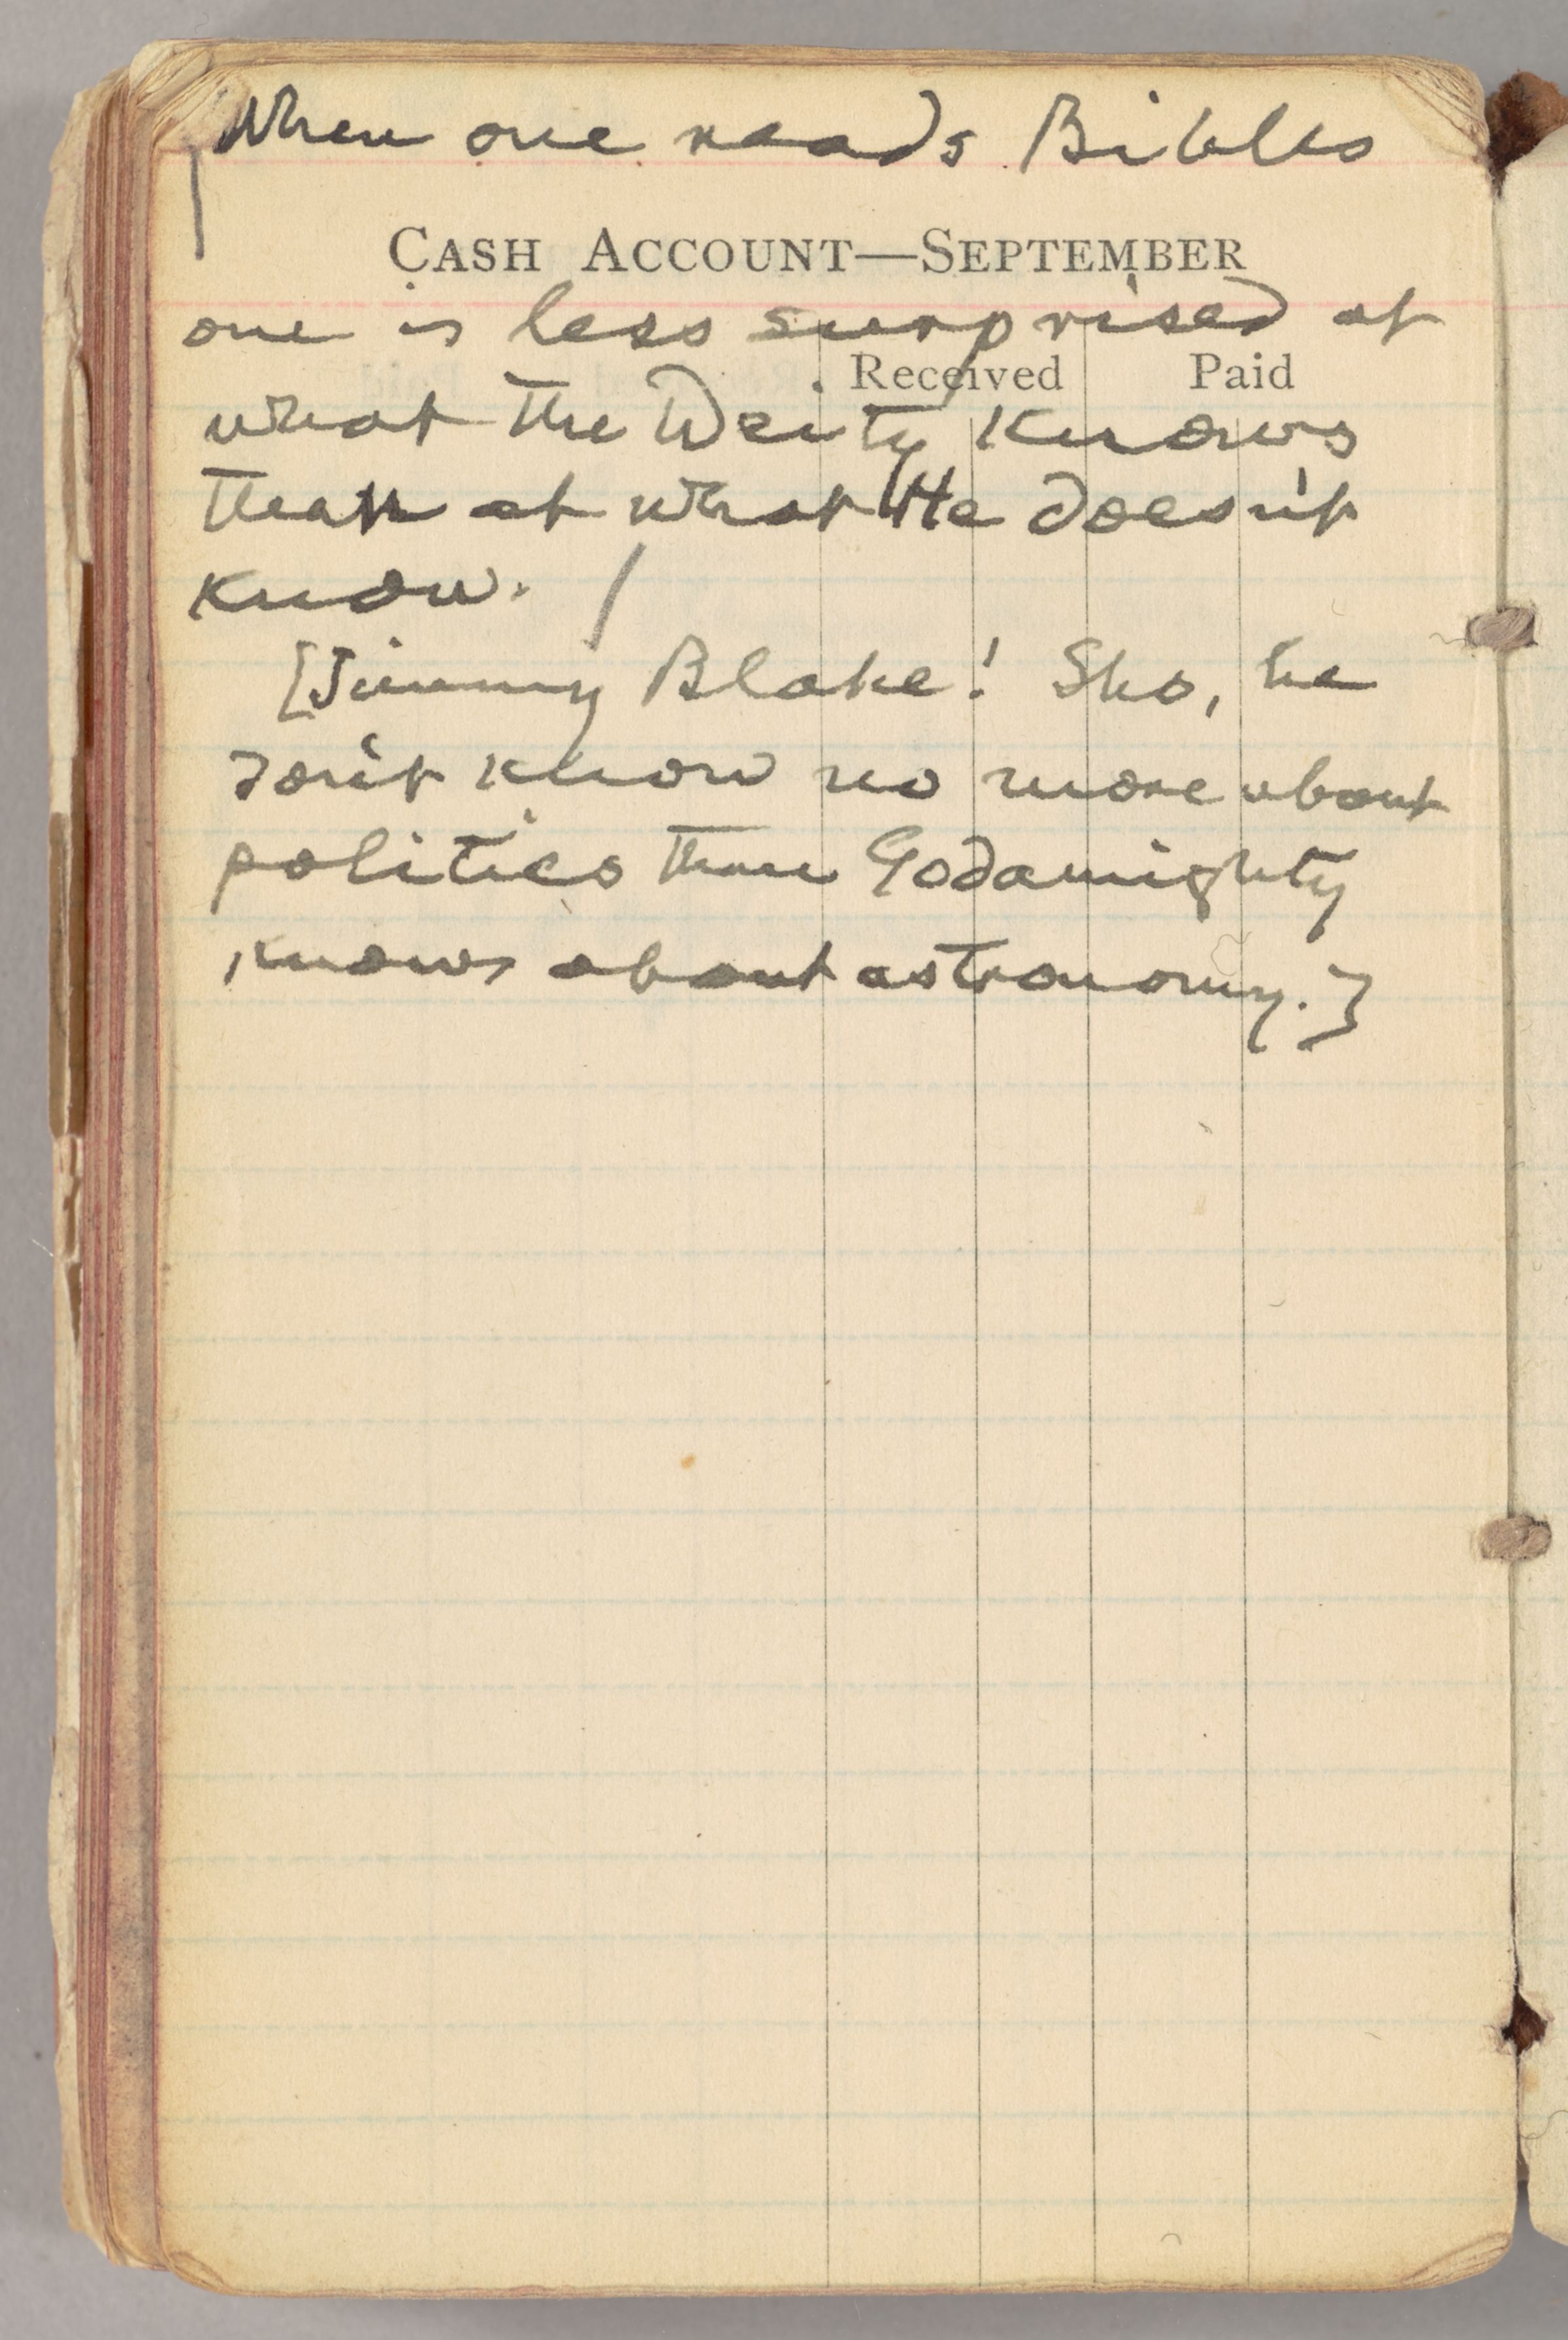 When one reads Bibles
CASH ACCOUNT—SEPTEMBER
one is less surprised at
Received Paid
what the Deity knows
than at what He doesn't
know. /
[Jimmy Blake! Sho, he
don't know no more about
politics than Godamighty
knows about astronomy.]